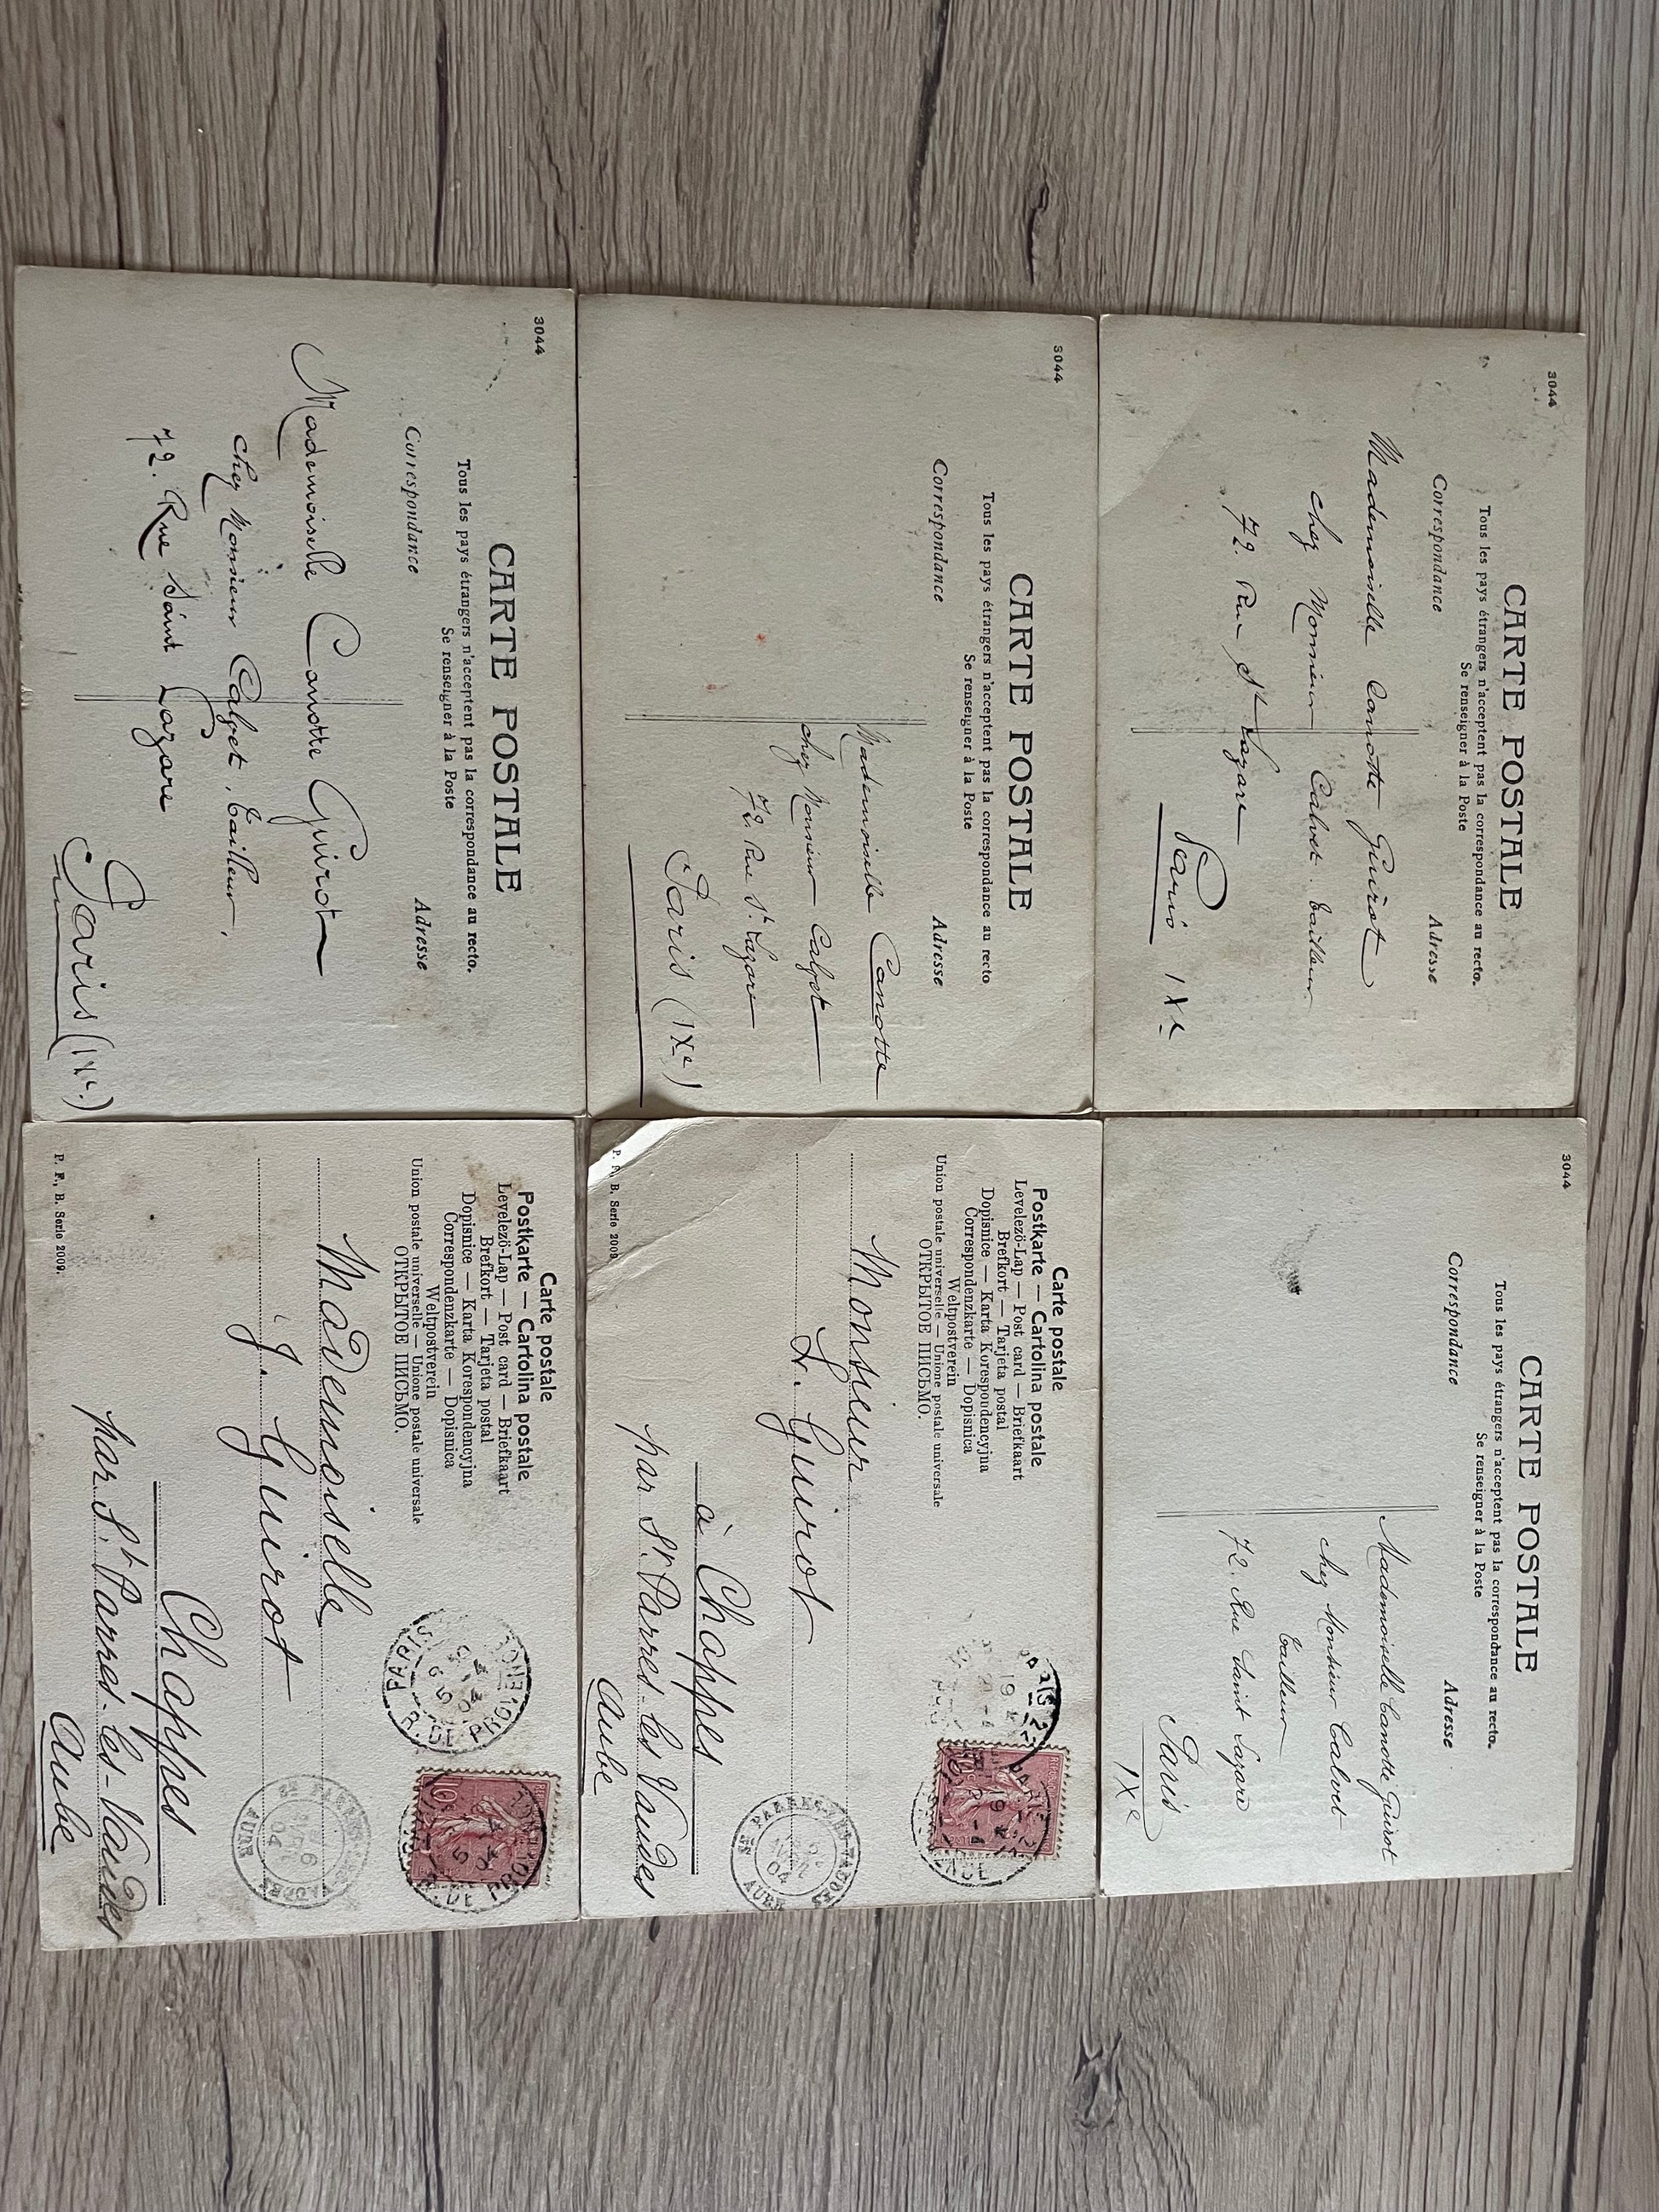 3044
CARTE POSTALE
Tous les pays étrangers n'acceptent pas la correspondance au recto.
Se renseigner à la Poste
Correspondance
Adresse
Mademoiselle Canotte Guirot
chez Monsieur Calvet. tailleur
72. Rue St Lazare
Paris IXe
3044
CARTE POSTALE
Tous les pays étrangers n'acceptent pas la correspondance au recto.
Se renseigner à la Poste
Correspondance
Adresse
Mademoiselle Canotte Guirot
chez Monsieur Calvet
tailleur
72. Rue Saint Lazare
Paris
IXe
3044
CARTE POSTALE
Tous les pays étrangers n'acceptent pas la correspondance au recto
Se renseigner à la Poste
Correspondance
Adresse
Mademoiselle Canotte
chez Monsieur Calvet
72. Rue St Lazare
Paris (IXe)
Carte postale
Postkarte — Cartolina postale
Levelező-Lap — Post card — Briefkaart
Brefkort — Tarjeta postal
Dopisnice — Karta Korespondencyjna
Correspondenzkarte — Dopisnica
Weltpostverein
Union postale universelle — Unione postale universale
ОТКРЫТОЕ ПИСЬМО.
Monsieur
L. Guirot
à Chappes
par St. Parres-les Vaudes
Aube
ST PARRES-LES-VAUDES
AUBE
04
P. F. B. Serie 2009.
3044
CARTE POSTALE
Tous les pays étrangers n'acceptent pas la correspondance au recto.
Se renseigner à la Poste
Correspondance
Adresse
Mademoiselle Canotte Guirot
chez Monsieur Calvet, tailleur,
72. Rue Saint Lazare
Paris (IXe.)
Carte postale
Postkarte — Cartolina postale
Levelező-Lap — Post card — Briefkaart
Brefkort — Tarjeta postal
Dopisnice — Karta Korespondencyjna
Correspondenzkarte — Dopisnica
Weltpostverein
Union postale universelle — Unione postale universale
ОТКРЫТОЕ ПИСЬМО.
PARIS
R. DE PROVENCE
10
Mademoiselle
J. Guirot
Chappes
par St Parres-les-Vaudes
Aube
AUBE
04
P. F., B. Serie 2009.